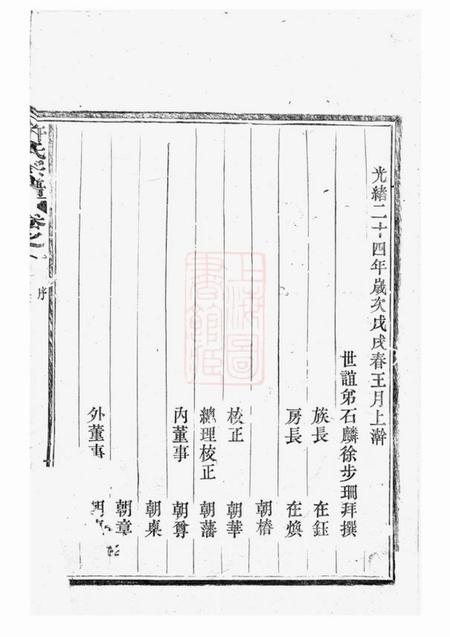 光緒二十四年歲次戊戌春王月上澣
世誼弟石麟徐步珊拜撰
族長 在鈺
房長 在煥
朝椿
校正 朝華
總理校正 朝藩
內董事 朝尊
朝桌
朝章
外董事
氏宗譜 卷之
序
上海圖書館藏